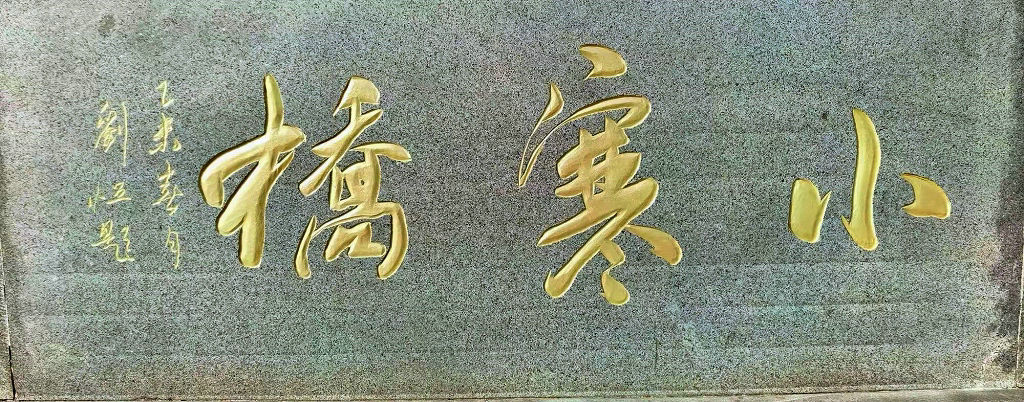 小寒橋
乙未春月
劉恆題